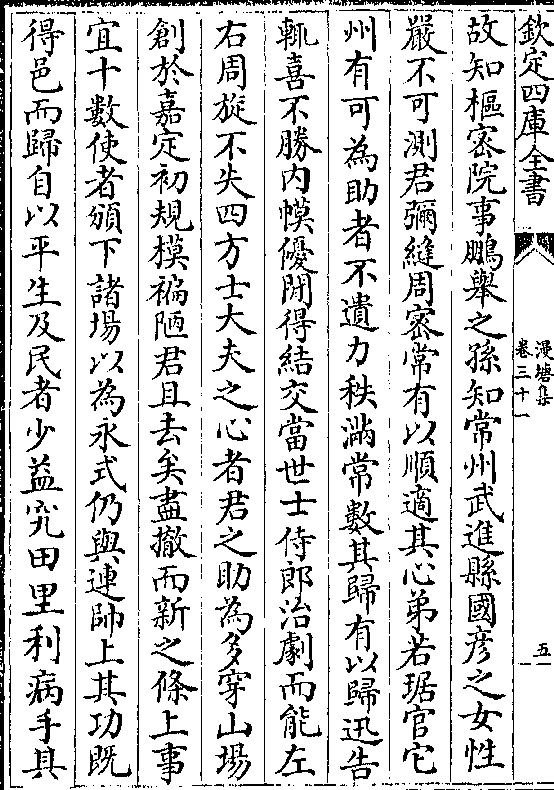 欽定四庫全書
漫塘集
卷三十一
五
故知樞密院事鵬舉之孫知常州武進縣國彦之女性
嚴不可測君彌縫周密常有以順適其心弟若琚官它
州有可為助者不遺力秩滿常數其歸有以歸迅告
輒喜不勝内幙優閒得結交當世士侍郎治劇而能左
右周旋不失四方士大夫之心者君之助為多穿山場
創於嘉定初規模褊陋君且去矣盡撤而新之條上事
宜十數使者頒下諸場以為永式仍與連帥上其功既
得邑而歸自以平生及民者少益究田里利病手具